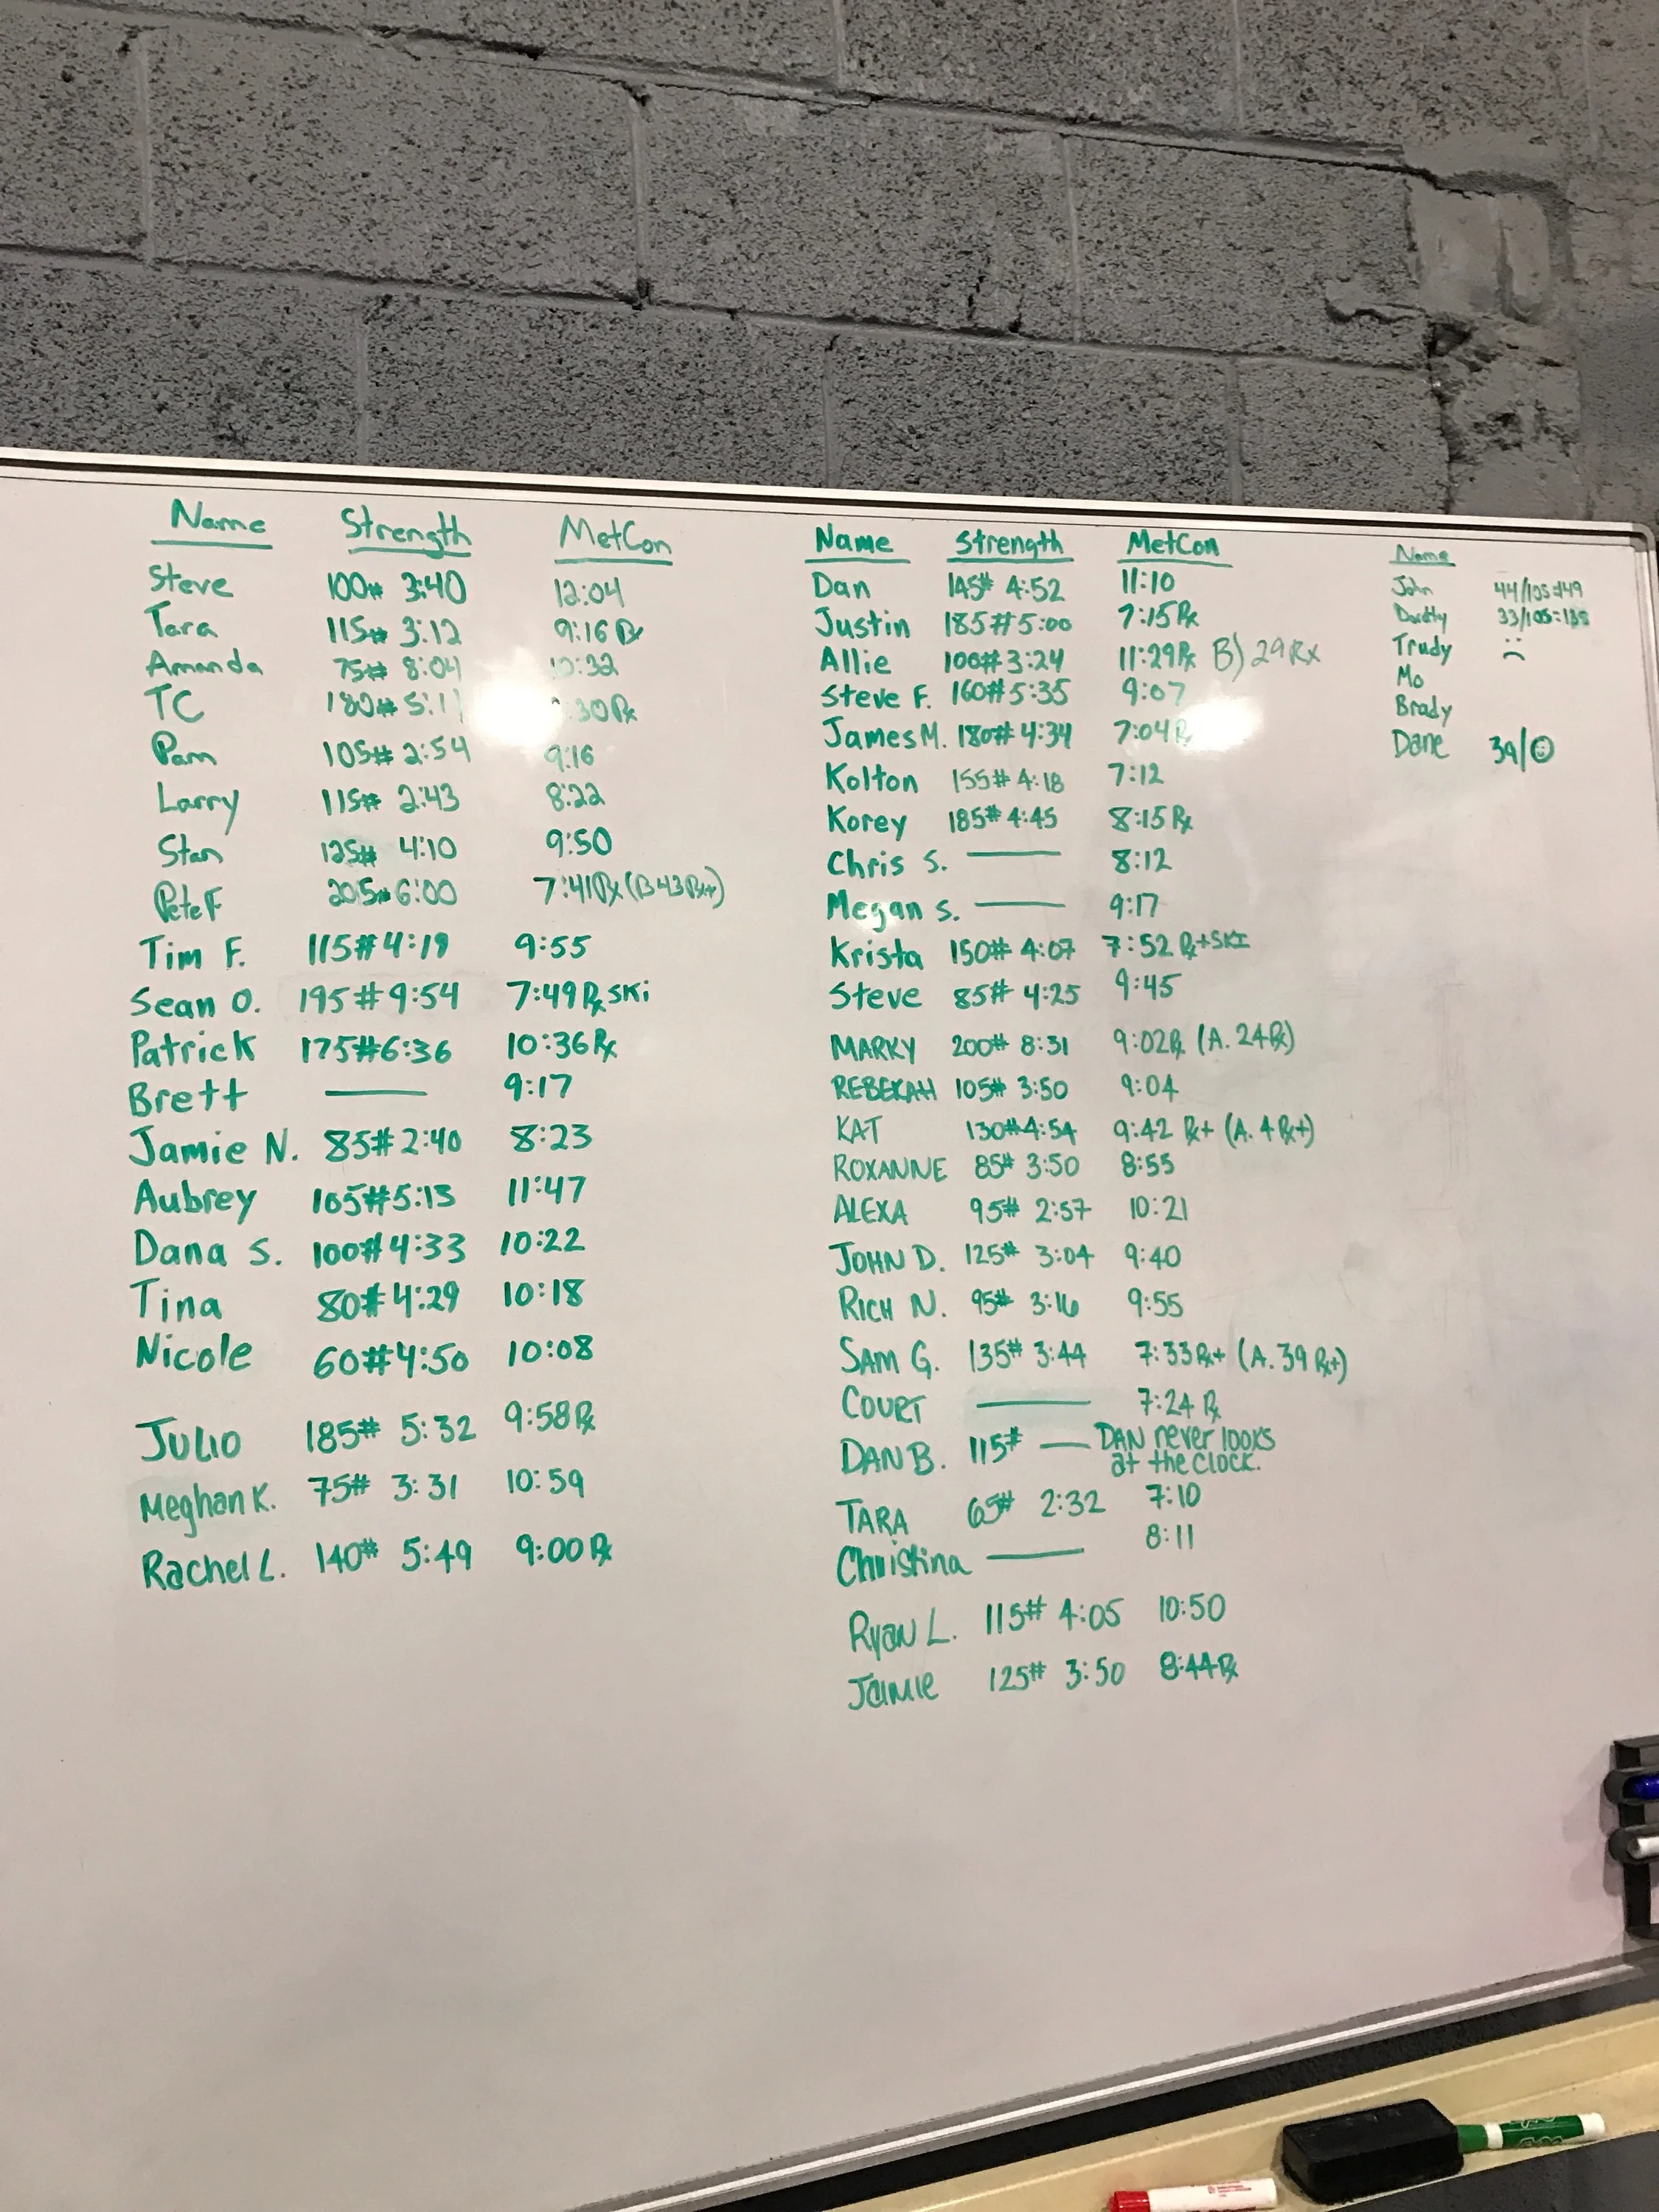 Name Strength MetCon
Steve 100# 3:40 12:04
Tara 115# 3:12 9:16 Rx
Amanda 75# 8:04
TC 180# 5:11
Pam 105# 2:54 9:16
Larry 115# 2:43 8:22
Stan 125# 4:10 9:50
Pete F 205# 6:00 7:41 Rx (B 43 Rx+)
Tim F. 115# 4:19 9:55
Sean O. 195# 9:54 7:49 Rx SKi
Patrick 175# 6:36 10:36 Rx
Brett — 9:17
Jamie N. 85# 2:40 8:23
Aubrey 105# 5:13 11:47
Dana S. 100# 4:33 10:22
Tina 80# 4:29 10:18
Nicole 60# 4:50 10:08
JULIO 185# 5:32 9:58 Rx
Meghan K. 75# 3:31 10:59
Rachel L. 140# 5:49 9:00 Rx
Name Strength MetCon
Dan 145# 4:52 11:10
Justin 185# 5:00 7:15 Rx
Allie 100# 3:24 11:29 Rx B) 29 Rx
Steve F. 160# 5:35 9:07
James M. 180# 4:34 7:04 Rx
Kolton 155# 4:18 7:12
Korey 185# 4:45 8:15 Rx
Chris S. — 8:12
Megan S. — 9:17
Krista 150# 4:07 7:52 Rx+SKI
Steve 85# 4:25 9:45
MARKY 200# 8:31 9:02 Rx (A. 24 Rx)
REBEKAH 105# 3:50 9:04
KAT 130# 4:54 9:42 Rx+ (A. 4 Rx+)
ROXANNE 85# 3:50 8:55
ALEXA 95# 2:57 10:21
JOHN D. 125# 3:04 9:40
RICH N. 95# 3:16 9:55
SAM G. 135# 3:44 7:33 Rx+ (A. 39 Rx+)
COURT — 7:24 Rx
DAN B. 115# — DAN never looks
at the clock.
TARA 65# 2:32 7:10
Christina — 8:11
Ryan L. 115# 4:05 10:50
Jaimie 125# 3:50 8:44 Rx
Name
John 44/105=149
33/105=138
Trudy
Mo
Brady
Dane 39/